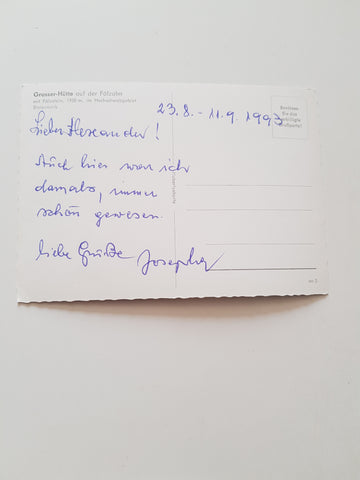 Grasser-Hütte auf der Fölzalm
mit Fölzstein, 1930 m, im Hochschwabgebiet
Steiermark
23.8. - 11.9. 1993
Lieber Alexander!
Auch hier war ich
damals, immer
schön gewesen.
liebe Grüße Josepha